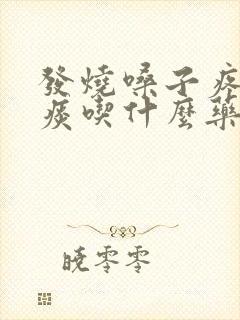 發燒嗓子疼
痰喫什麼藥
曉零零